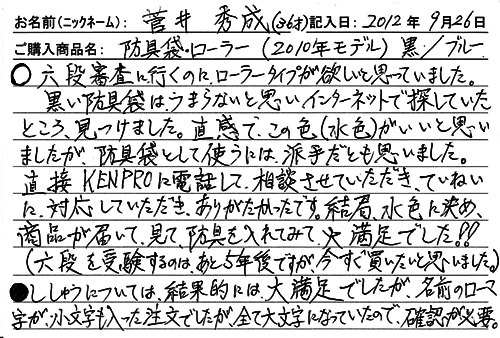 お名前(ニックネーム): 菅井 秀成(36才)記入日: 2012年 9月26日
ご購入商品名: 防具袋・ローラー(2010年モデル)黒/ブルー
○六段審査に行くのに、ローラータイプが欲しいと思っていました。
黒い防具袋はつまらないと思い、インターネットで探していた
ところ、見つけました。直感で、この色(水色)がいいと思い
ましたが、防具袋として使うには、派手だとも思いました。
直接KENPROに電話して、相談させていただき、ていねい
に、対応していただき、ありがたかったです。結局、水色に決め、
商品が届いて、見て、防具を入れてみて、大満足でした!!
(六段を受験するのは、あと5年後ですが、今すぐ買いたいと思いました。)
●ししゅうについては、結果的には、大満足でしたが、名前のローマ
字が、小文字も入った注文でしたが、全て大文字になっていたので、確認が必要。